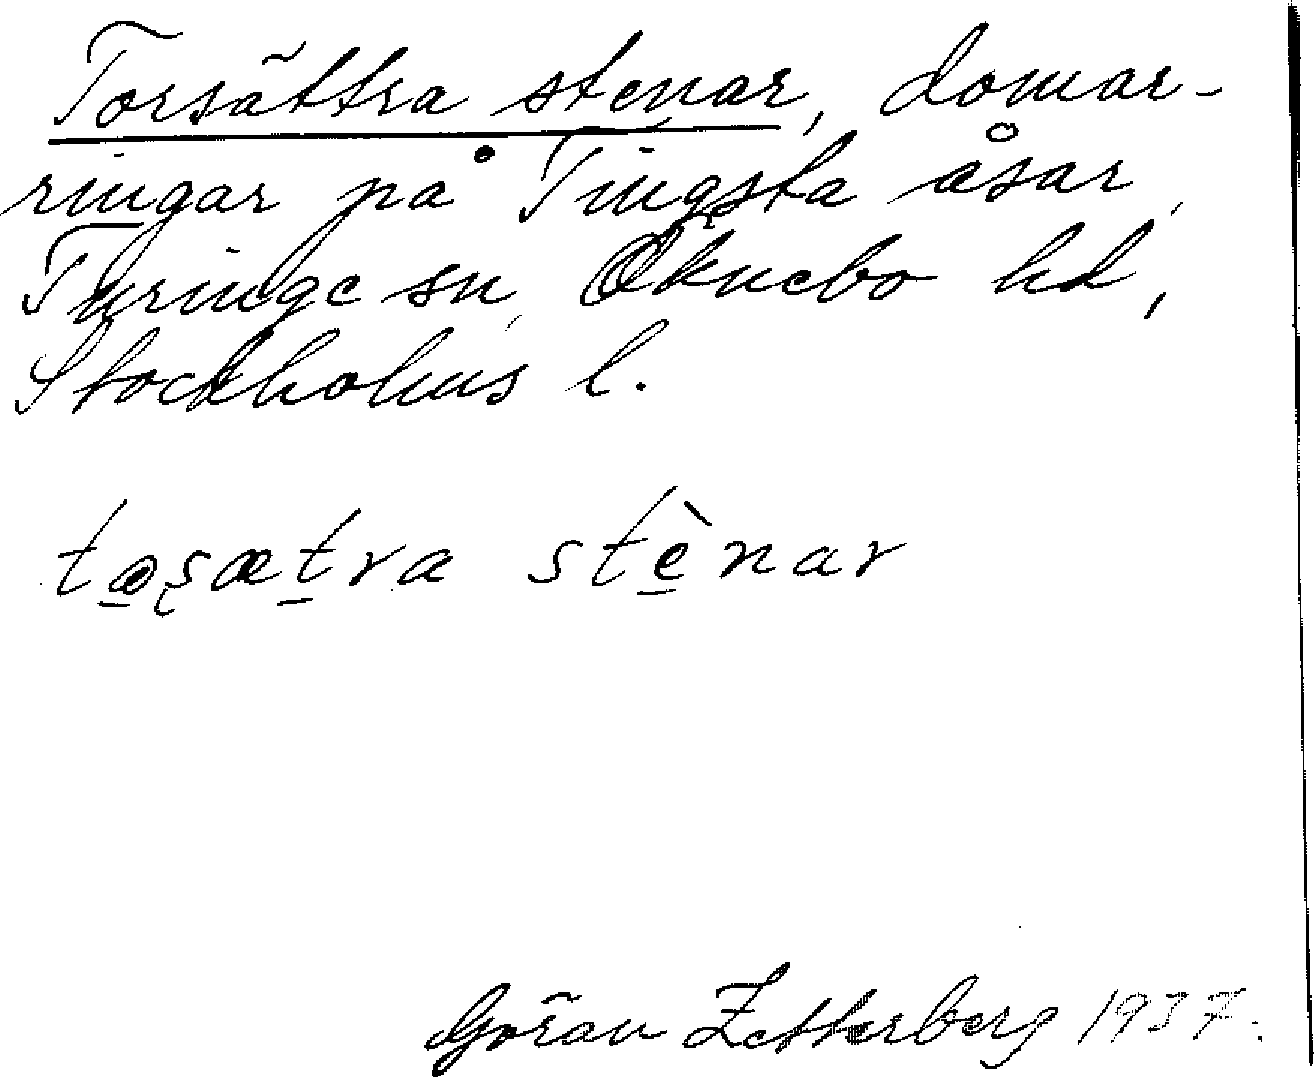 Torsättra stenar, domar-
ringar på Tingsta åsar,
Turinge sn, Öknebo hd,
Stockholms l.
stènar
Göran Zetterberg 1937.